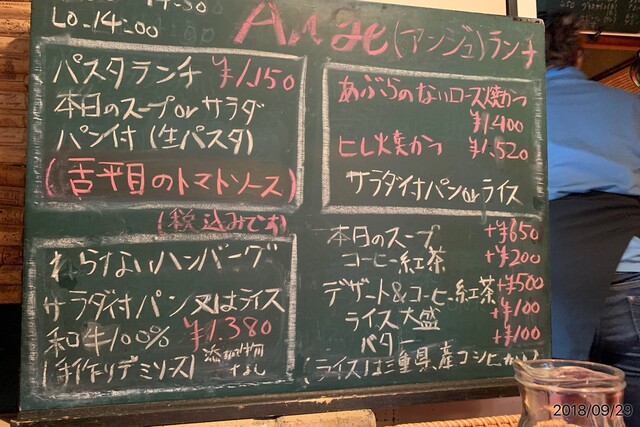 LO.14:00
Ange (アンジュ) ランチ
パスタランチ ¥1,150
本日のスープorサラダ
パン付 (生パスタ)
(舌平目のトマトソース)
(税込みです)
あぶらのないロース焼かつ
¥1,400
ヒレ焼かつ ¥1,520
サラダ付パンorライス
ねらないハンバーグ
サラダ付パン又はライス
和牛100% ¥1.380
(手作りデミソース) 添加物なし
本日のスープ +¥650
コーヒー紅茶 +¥200
デザート&コーヒー紅茶 +¥500
ライス大盛 +¥100
バター +¥100
(ライスは三重県産コシヒカリ)
2018/09/29